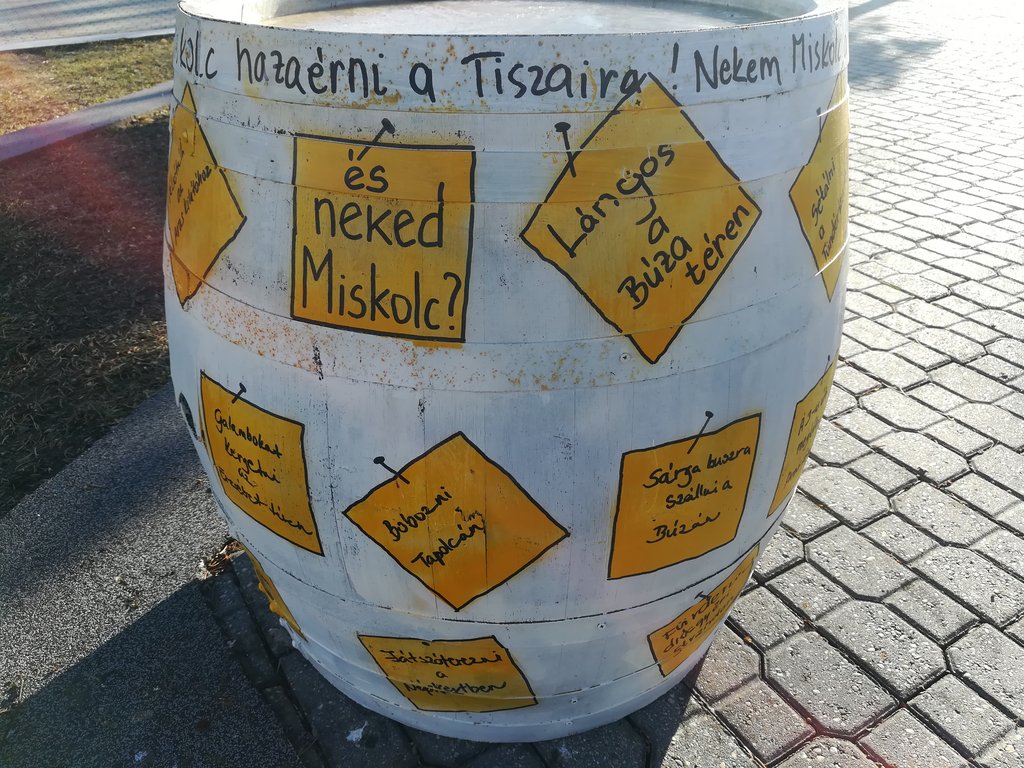 kolc hazaérni a Tiszaira! Nekem Miskolc
és
neked
Miskolc?
Lángos
a
Búza
téren
Sétálni
a
Galambokat
kergetni
az
Bobozni
Tapolcán
Sárga buszra
szállni a
Búzán
Játszóterezni
a
Népkertben